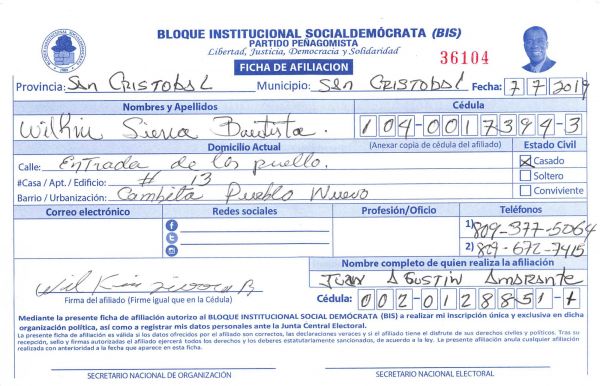 BLOQUE INSTITUCIONAL SOCIALDEMÓCRATA (BIS)
PARTIDO PEÑAGOMISTA
Libertad, Justicia, Democracia y Solidaridad
36104
FICHA DE AFILIACION
Provincia: San CRISTOBAL Municipio: San CRISTOBAL Fecha: 7 7 2019
Nombres y Apellidos Cédula
Wilkin Sierra Bautista. 104-0017394-3
Domicilio Actual (Anexar copia de cédula del afiliado) Estado Civil
Calle: Entrada de los puello. Casado
#Casa / Apt. / Edificio: # 13 Soltero
Barrio / Urbanización: Cambita Pueblo Nuevo Conviviente
Correo electrónico Redes sociales Profesión/Oficio Teléfonos
1) 809-377-5064
2) 829-672-7415
Nombre completo de quien realiza la afiliación
JUAN AGUSTIN AMARANTE
Firma del afiliado (Firme igual que en la Cédula) Cédula: 002-0128851-1
Mediante la presente ficha de afiliación autorizo al BLOQUE INSTITUCIONAL SOCIAL DEMÓCRATA (BIS) a realizar mi inscripción única y exclusiva en dicha
organización política, así como a registrar mis datos personales ante la Junta Central Electoral.
La presente ficha de afiliación es válida si los datos ofrecidos por el afiliado son correctos, las declaraciones veraces y si el afiliado tiene el disfrute de sus derechos civiles y políticos. Tras su
recepción, sello y firmas autorizadas el afiliado ejercerá todos los derechos y los deberes estatutariamente sancionados, de acuerdo a la ley. La presente afiliación anula cualquier afiliación
realizada con anterioridad a la fecha que aparece en esta ficha.
SECRETARIO NACIONAL DE ORGANIZACIÓN SECRETARIO NACIONAL ELECTORAL